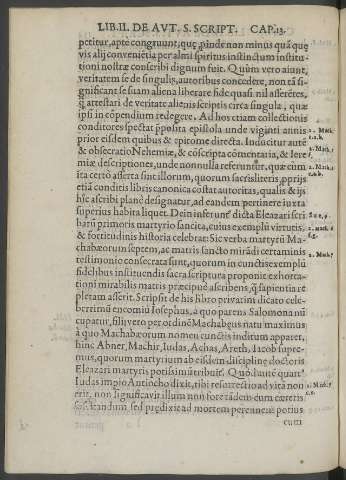 LIB.II. DE AVT. S. SCRIPT. CAP.13.
petitur, apte congruunt, quę, ꝓinde non minus quā quę
vis alij convenientia per almi spiritus instinctum institu-
tioni nostræ conscribi dignum fuit. Quùm vero aiunt,
veritatem se de singulis, autoribus concedere, non tā si-
gnificant se suam aliena liberare fide quasi nil asserētes,
q̄ attestari de veritate alienis scriptis circa singula, quæ
ipsi in cōpendium redegere. Ad hos etiam collectionis
conditores spectat p̄posita epistola unde viginti annis
prior eisdem quibus & epitome directa. Inducitur autē
& obsecratio Nehemiæ, & cōscripta cōmentaria, & Iere
miæ descriptiones, unde nonnulla referuntur, quæ cum
ita certò asserta sint illorum, quorum sacris literis, pprijs
etiā conditis libris canonica cōstat autoritas, qualis & ijs
hic ascribi planè designatur, ad eandem pertinere iuxta
superius habita liquet. Dein inserunt' dicta Eleazari scri
barū primoris martyrio sancita, cuius exemplū virtutis,
& fortitudinis historia celebrat: Sic verba martyrū Ma-
chabæorum septem, ac matris sancto mirādi certaminis
testimonio consecrata sunt, quorum in cunctis exemplū
fidelibus instituendis sacra scriptura proponit exhorta-
tioni mirabilis matris præcipuè ascribens, q̄ sapientia re
pletam asserit. Scripsit de his libro privatim dicato cele-
berrimū encomiū Iosephus, à quo parens Salomona nū
cupatur, filij vero per ordinē Machabęus natu maximus
à quo Machabæorum nomen cunctis inditum apparet,
hinc Abner, Machir, Iudas, Achas, Areth, Iacob supre-
mus, quorum martyrium ab eisdem disciplinę doctoris
Eleazari martyris potissimū tribuit'. Quòd autē quart'
Iudas impio Antiocho dixit, tibi resurrectio ad vitā non
erit, non significavit illum non fore tādem cum cæteris
suscitandum sed prędixit ad mortem perennem potius
cum